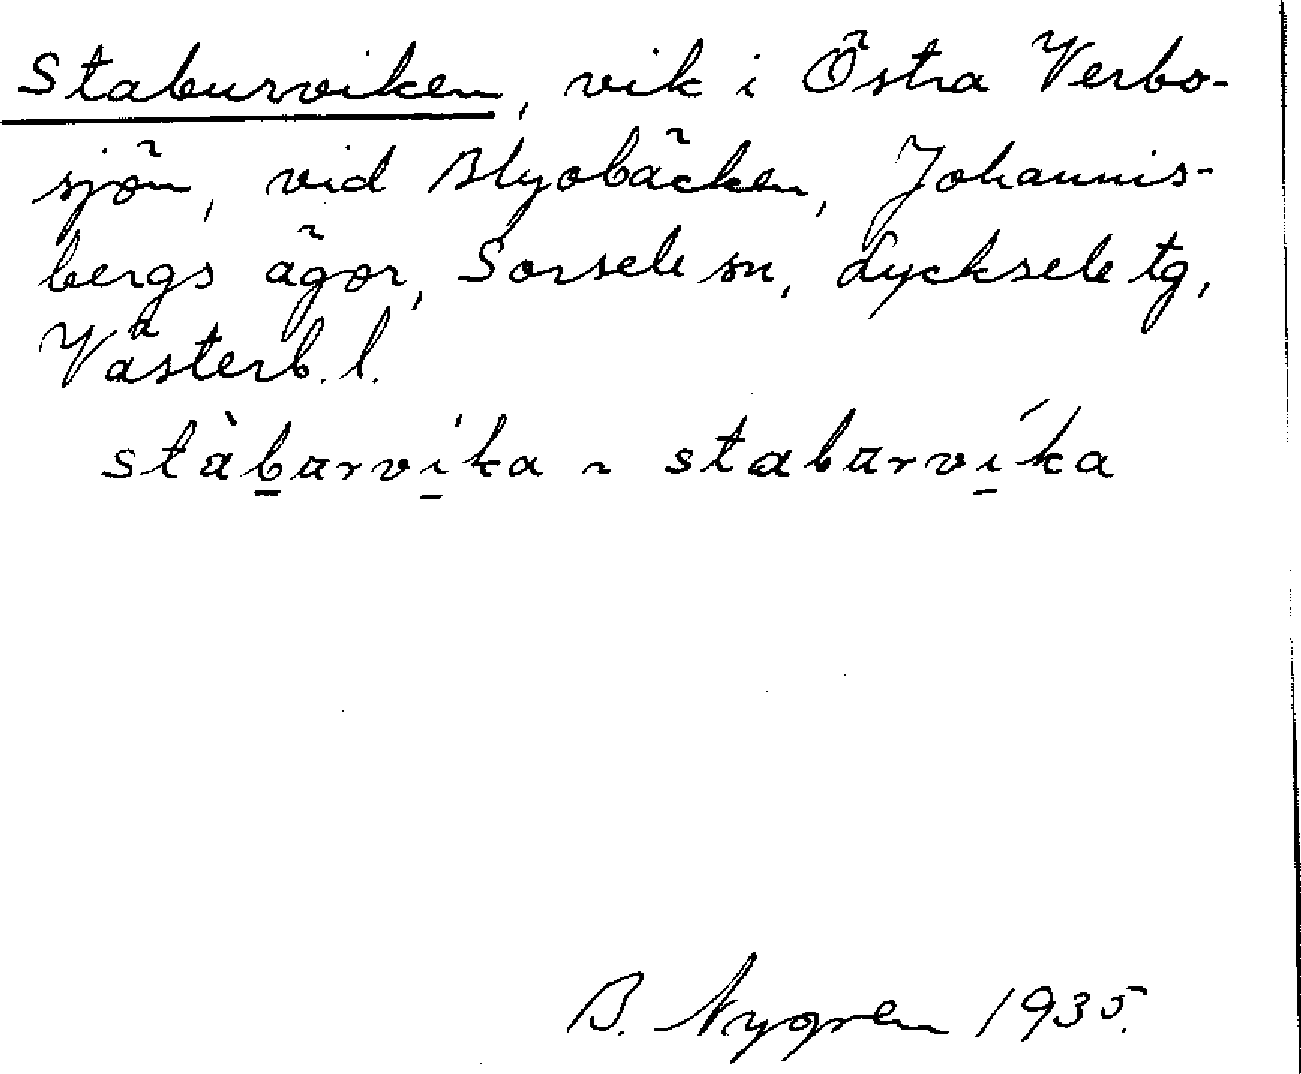 Staburviken, vik i Östra Verbo-
sjön, vid Blyobäcken, Johannis-
bergs ägor, Sorsele sn, Lycksele tg,
Västerb. l.
stàb̲urvi̲ka ~ staburví̲ka
B. Nygren 1935.